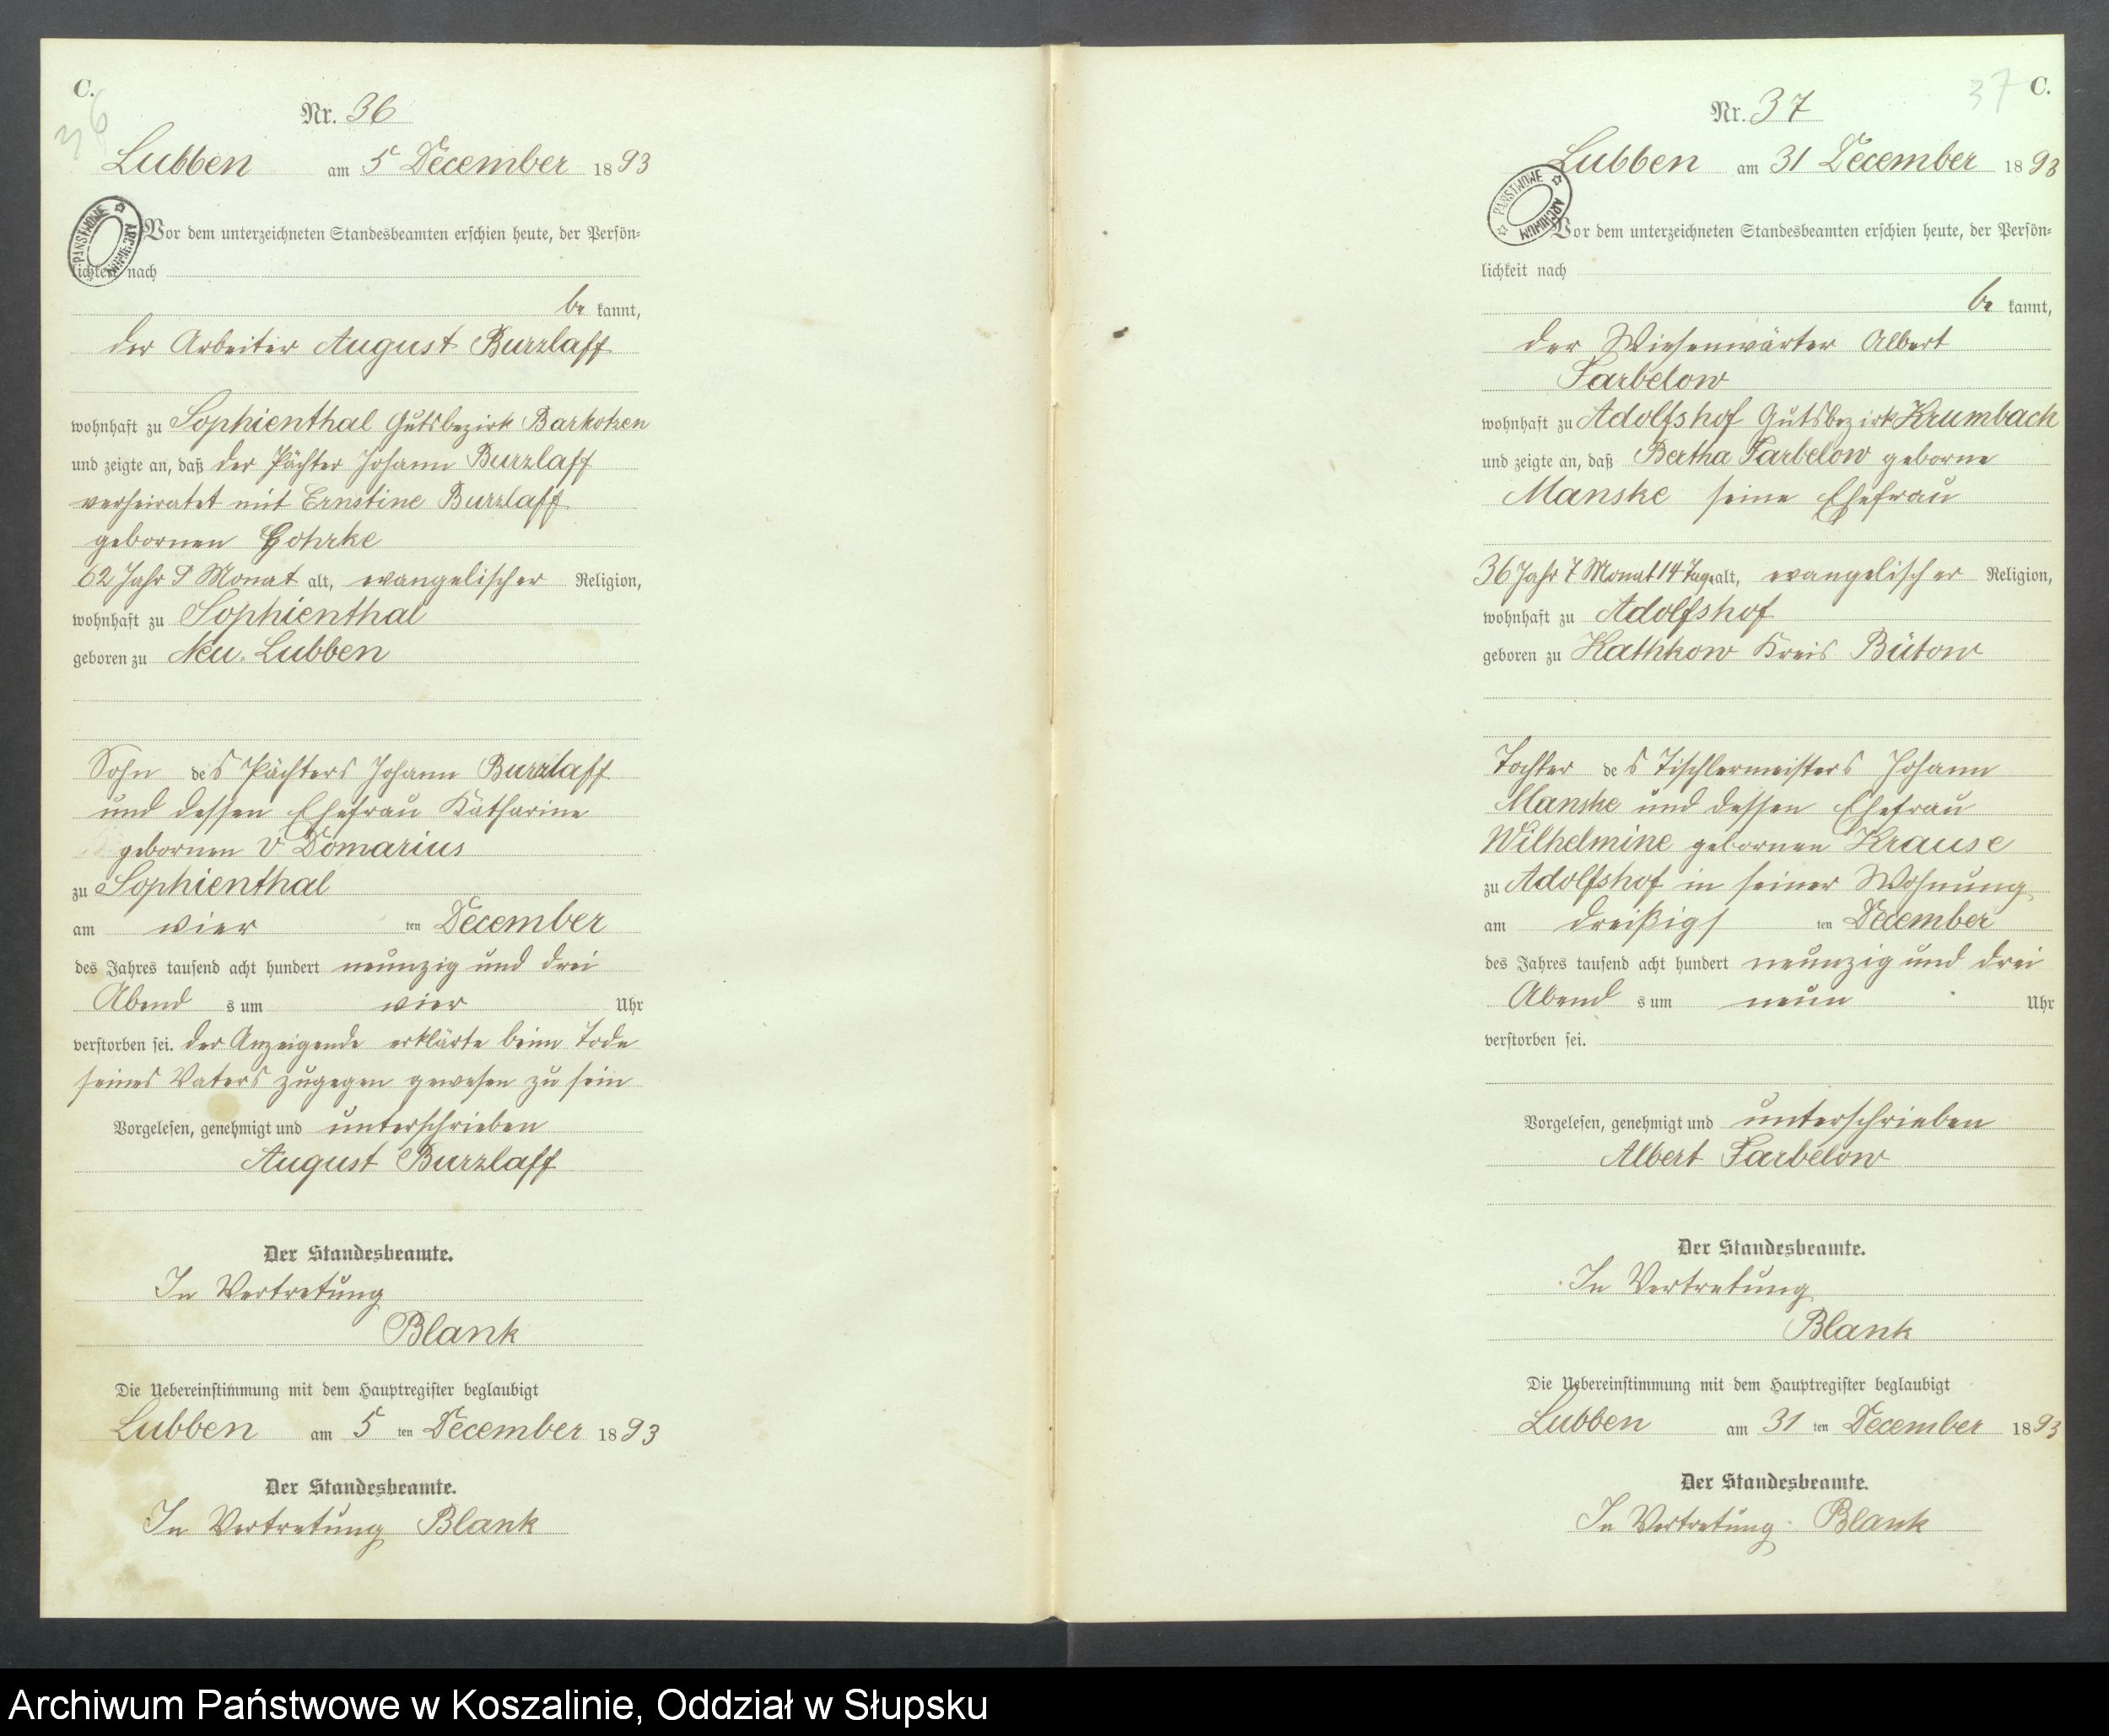 C.
36
Nr. 36
Lubben am 5 December 1893
PAŃSTWOWE ARCHIWUM
Vor dem unterzeichneten Standesbeamten erschien heute, der Persön-
lichkeit nach
be kannt,
der Arbeiter August Burzlaff
wohnhaft zu Sophienthal Gutsbezirk Barkotzen
und zeigte an, daß der Pächter Johann Burzlaff
verheiratet mit Ernstine Burzlaff
gebornen Gohrke
62 Jahr Monat alt, evangelischer Religion,
wohnhaft zu Sophienthal
geboren zu Neu-Lubben
Sohn des Pächters Johann Burzlaff
und dessen Ehefrau Katharine
gebornen v Domarius
zu Sophienthal
am vier ten December
des Jahres tausend acht hundert neunzig und drei
Abend s um vier Uhr
verstorben sei. der Anzeigende erklärte beim Tode
seines Vaters zugegen gewesen zu sein
Vorgelesen, genehmigt und unterschrieben
August Burzlaff
Der Standesbeamte.
In Vertretung
Blank
Die Uebereinstimmung mit dem Hauptregister beglaubigt
Lubben am 5 ten December 1893
Der Standesbeamte.
In Vertretung Blank
37 C.
Nr. 37
Lubben am 31 December 1893
PAŃSTWOWE ARCHIWUM
Vor dem unterzeichneten Standesbeamten erschien heute, der Persön-
lichkeit nach
be kannt,
der Wiesenwärter Albert
Farbelow
wohnhaft zu Adolfshof Gutsbezirk Krumbach
und zeigte an, daß Bertha Farbelow geborne
Manske seine Ehefrau
36 Jahr 7 Monat 14 Tage alt, evangelischer Religion,
wohnhaft zu Adolfshof
geboren zu Kathkow Kreis Bütow
Tochter des Tischlermeisters Johann
Manske und dessen Ehefrau
Wilhelmine gebornen Krause
zu Adolfshof in seiner Wohnung
am dreißigs ten December
des Jahres tausend acht hundert neunzig und drei
Abend s um neun Uhr
verstorben sei.
Vorgelesen, genehmigt und unterschrieben
Albert Farbelow
Der Standesbeamte.
In Vertretung
Blank
Die Uebereinstimmung mit dem Hauptregister beglaubigt
Lubben am 31 ten December 1893
Der Standesbeamte.
In Vertretung Blank
Archiwum Państwowe w Koszalinie, Oddział w Słupsku